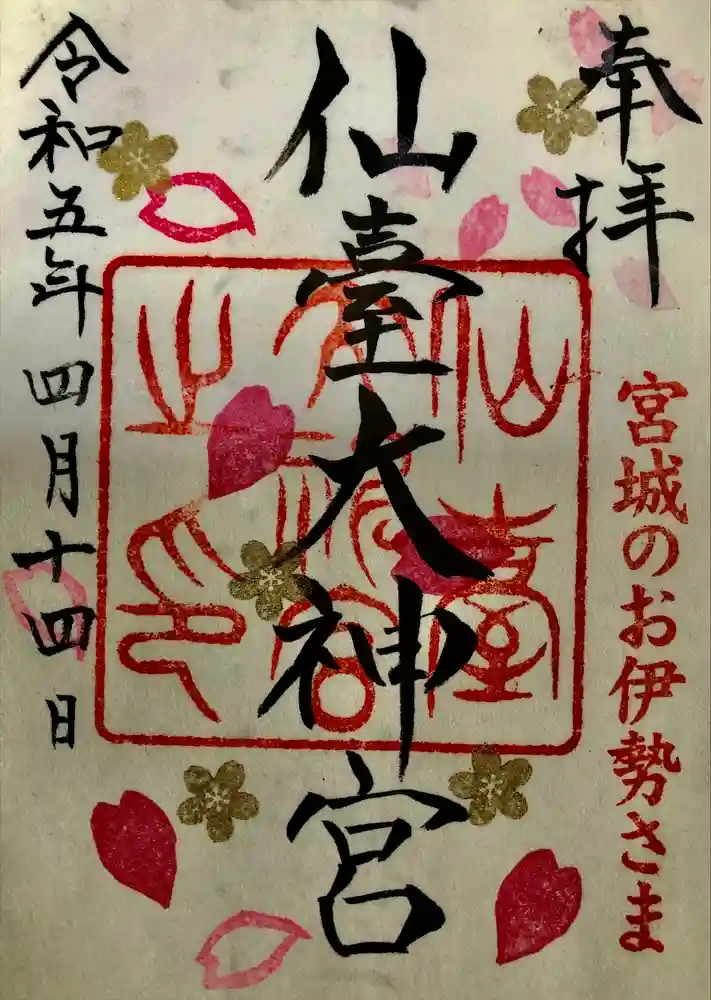 奉拝
宮城のお伊勢さま
仙臺大神宮
仙臺大神宮之印
令和五年四月十四日